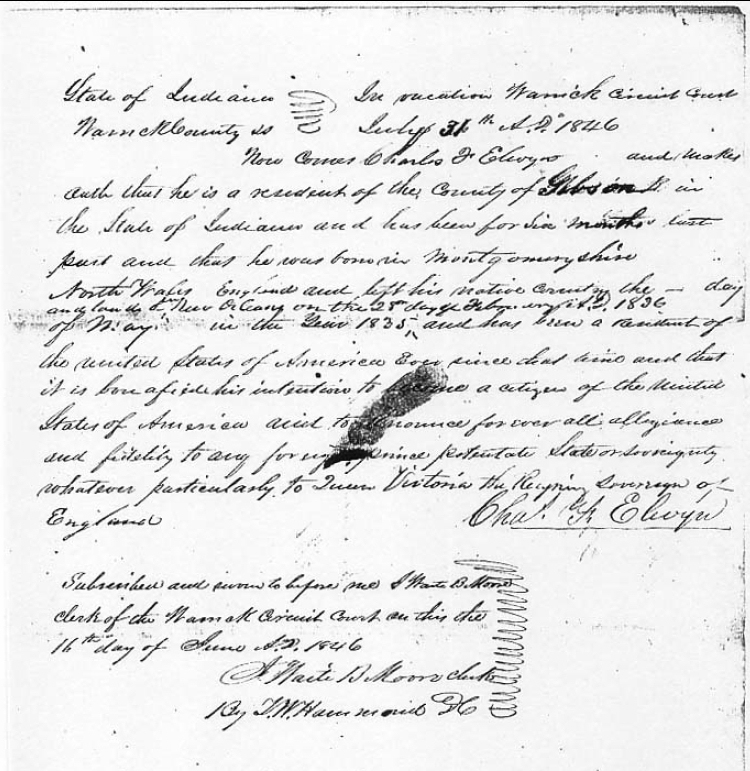 State of Indiana In vacation Warrick Circuit Court
Warrick County ss July 31th A.D. 1846
Now Comes Charles F Elwyn and makes
oath that he is a resident of the County of Gibson in
the State of Indiana and has been for six months last
past and that he was born in Montgomeryshire
North Wales England and left his native Country the – day
and landed at New Orleans on the 28 day of February A.D. 1836
of May in the Year 1835, and has been a resident of
the united States of America Ever since that time and that
it is bona fide his intention to become a citizen of the United
States of America and to renounce for ever all allegiance
and fidelity to any foreign prince potentate State or sovereignty
whatever particularly to Queen Victoria the Reigning Sovereign of
England Chas. F. Elwyn
Subscribed and sworn to before me J Waite B Moore
clerk of the Warrick Circuit Court on this the
16th day of June A.D. 1846
J. Waite B Moore clerk
By T.W. Hammond DC